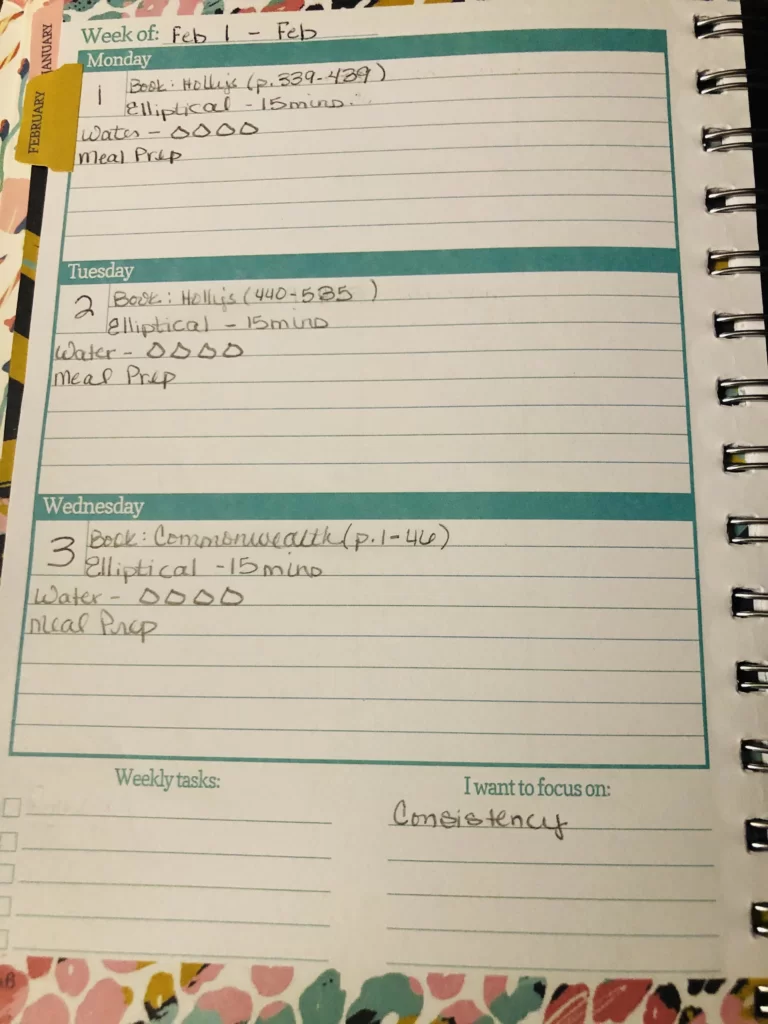 JANUARY
FEBRUARY
Week of: Feb 1 - Feb
Monday
1 Book: Hollijs (p.339-439)
Elliptical - 15mins
Water -
Meal Prep
Tuesday
2 Book: Hollijs (440-535 )
Elliptical - 15mins
Water -
Meal Prep
Wednesday
3 Book: Commonwealth (p.1-46)
Elliptical - 15mins
Water -
Meal Prep
Weekly tasks:
I want to focus on:
Consistency